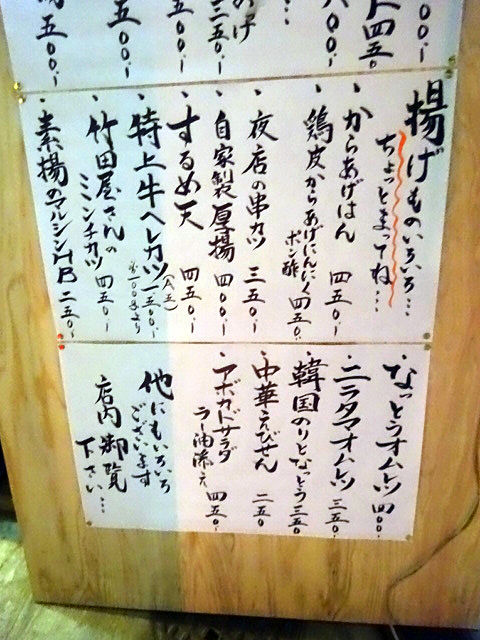 揚げものいろいろ…
ちょっとまってね…
・からあげはん 四五〇
・鶏皮からあげにんにくポン酢 四五〇
・夜店の串カツ 三五〇
・自家製厚揚 四〇〇
・するめ天 四五〇
・特上牛ヘレカツ(A五) 一五〇〇
・竹田屋さんの
ミンチカツ 四五〇
・素揚のマルシンHB 二五〇
・なっとうオムレツ 四〇〇
・ニラタマオムレツ 三五〇
・韓国のりとなっとう 三五〇
・中華えびせん 二五〇
・アボガドサラダ
ラー油添え 四五〇
他にもいろいろ
ございます
店内御覧
下さい…